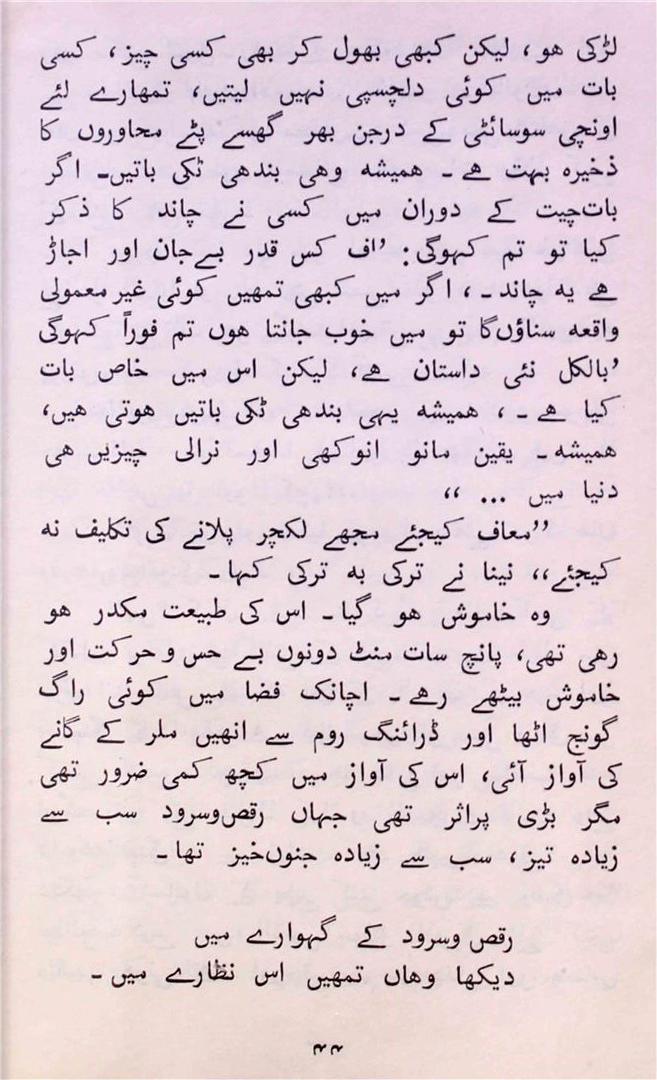 لڑکی ھو، لیکن کبھی بھول کر بھی کسی چیز، کسی
بات میں کوئی دلچسپی نہیں لیتیں، تمھارے لئے
اونچی سوسائٹی کے درجن بھر گھسے پٹے محاوروں کا
ذخیرہ بہت ھے۔ ھمیشہ وھی بندھی ٹکی باتیں۔ اگر
بات‌چیت کے دوران میں کسی نے چاند کا ذکر
کیا تو تم کہوگی: ’اف کس قدر بے‌جان اور اجاڑ
ھے یہ چاند۔، اگر میں کبھی تمھیں کوئی غیر معمولی
واقعہ سناؤں‌گا تو میں خوب جانتا ھوں تم فوراً کہوگی
’بالکل نئی داستان ھے، لیکن اس میں خاص بات
کیا ھے۔، ھمیشہ یہی بندھی ٹکی باتیں ھوتی ھیں،
ھمیشہ۔ یقین مانو انوکھی اور نرالی چیزیں ھی
دنیا میں ... ،،
’’معاف کیجئے مجھے لکچر پلانے کی تکلیف نہ
کیجئے،، نینا نے ترکی بہ ترکی کہا۔
وہ خاموش ھو گیا۔ اس کی طبیعت مکدر ھو
رھی تھی، پانچ سات منٹ دونوں بے حس و حرکت اور
خاموش بیٹھے رھے۔ اچانک فضا میں کوئی راگ
گونج اٹھا اور ڈرائنگ روم سے انھیں ملر کے گانے
کی آواز آئی، اس کی آواز میں کچھ کمی ضرور تھی
مگر بڑی پراثر تھی جہاں رقص‌وسرود سب سے
زیادہ تیز، سب سے زیادہ جنوں‌خیز تھا۔
رقص وسرود کے گہوارے میں
دیکھا وھاں تمھیں اس نظارے میں۔